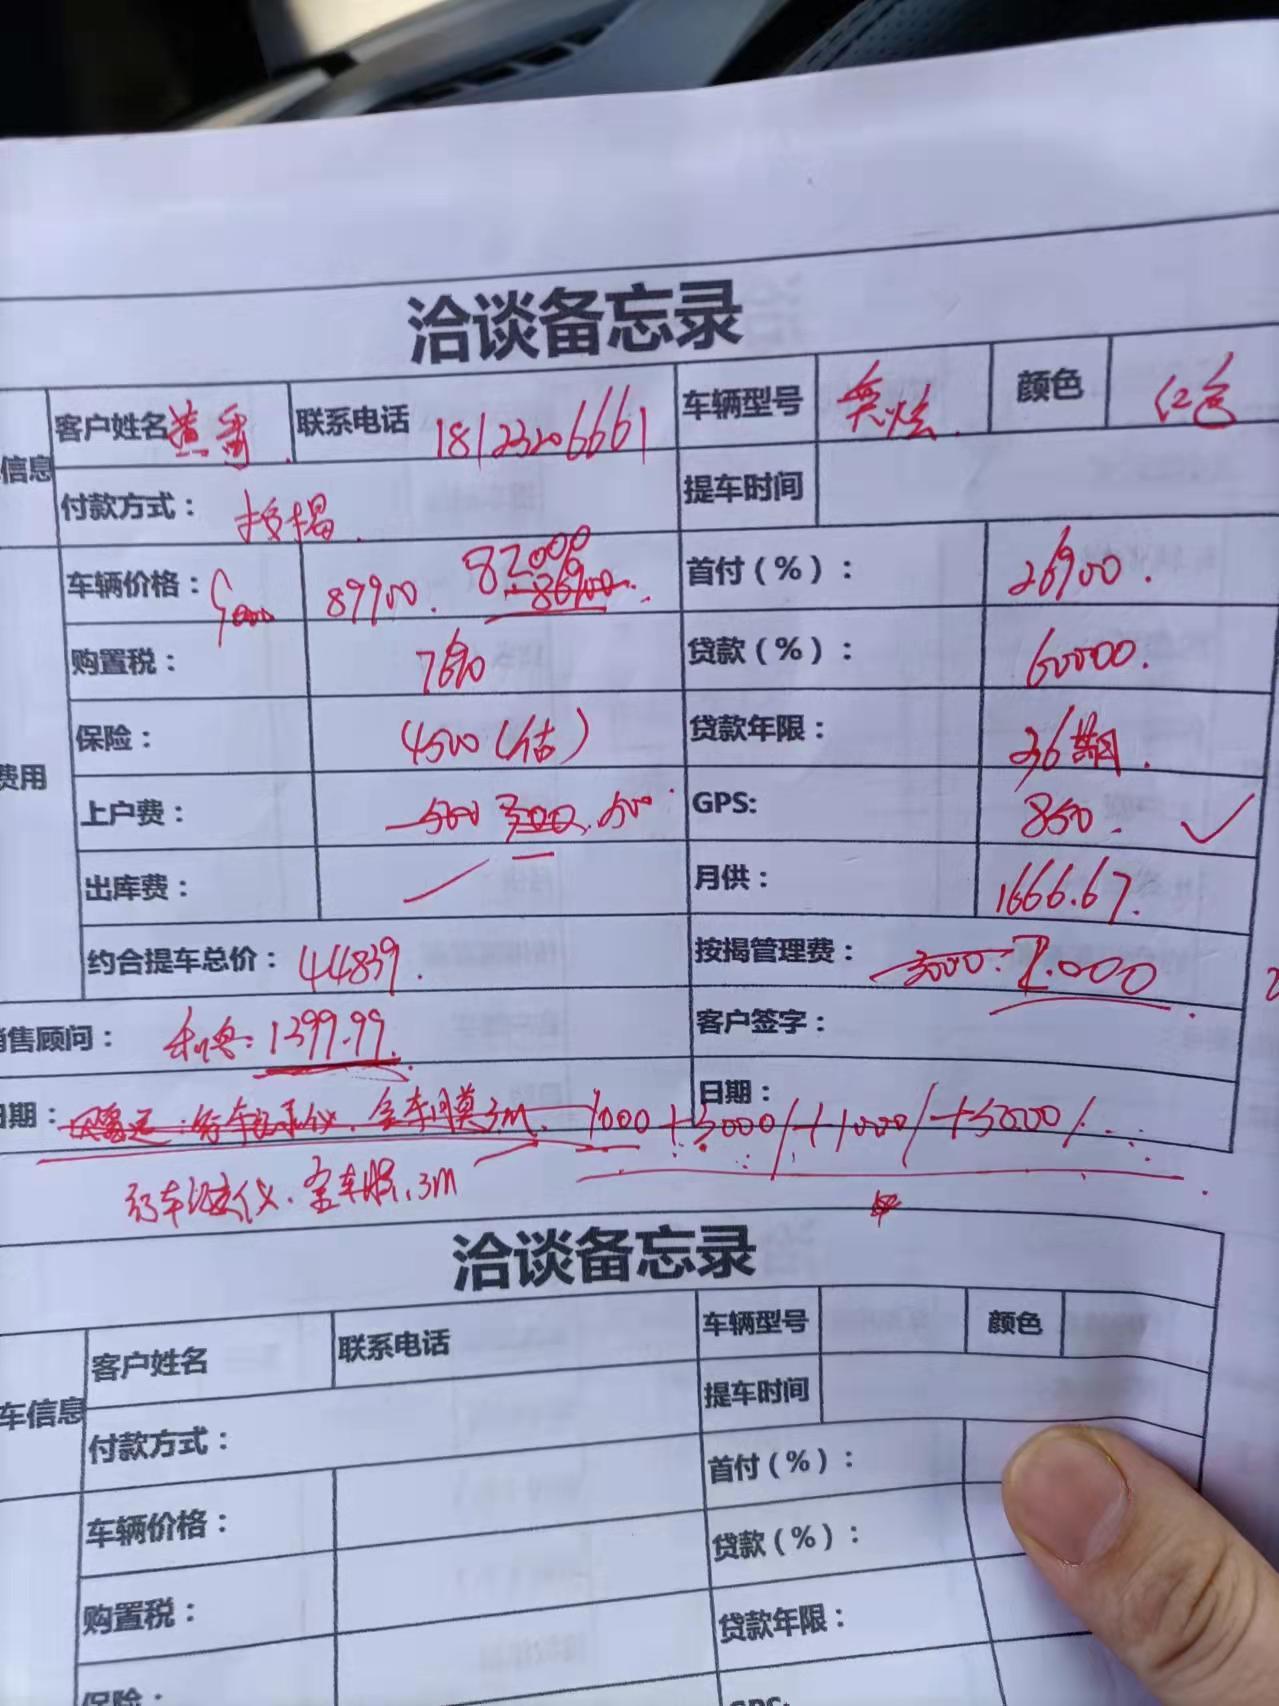 洽谈备忘录
信息 客户姓名 黄哥 联系电话 18123206661 车辆型号 奕炫 颜色 红色
付款方式： 按揭 提车时间
费用 车辆价格： 89900. 82000 86900. 首付（%）： 26900.
购置税： 7690 贷款（%）： 60000.
保险： 4500（估） 贷款年限： 36期.
上户费： 500 300. 500 GPS: 850. ✓
出库费： 月供： 1666.67.
约合提车总价： 44839. 按揭管理费： 3000. 2.000
销售顾问： 利息: 1399.99. 客户签字：
日期： 行车记录仪. 全车膜3M. 日期： 1000+3000/+1000/+5000/
行车记录仪. 全车膜. 3M
洽谈备忘录
车信息 客户姓名 联系电话 车辆型号 颜色
付款方式： 提车时间
车辆价格： 首付（%）：
购置税： 贷款（%）：
保险： 贷款年限：
GPS: